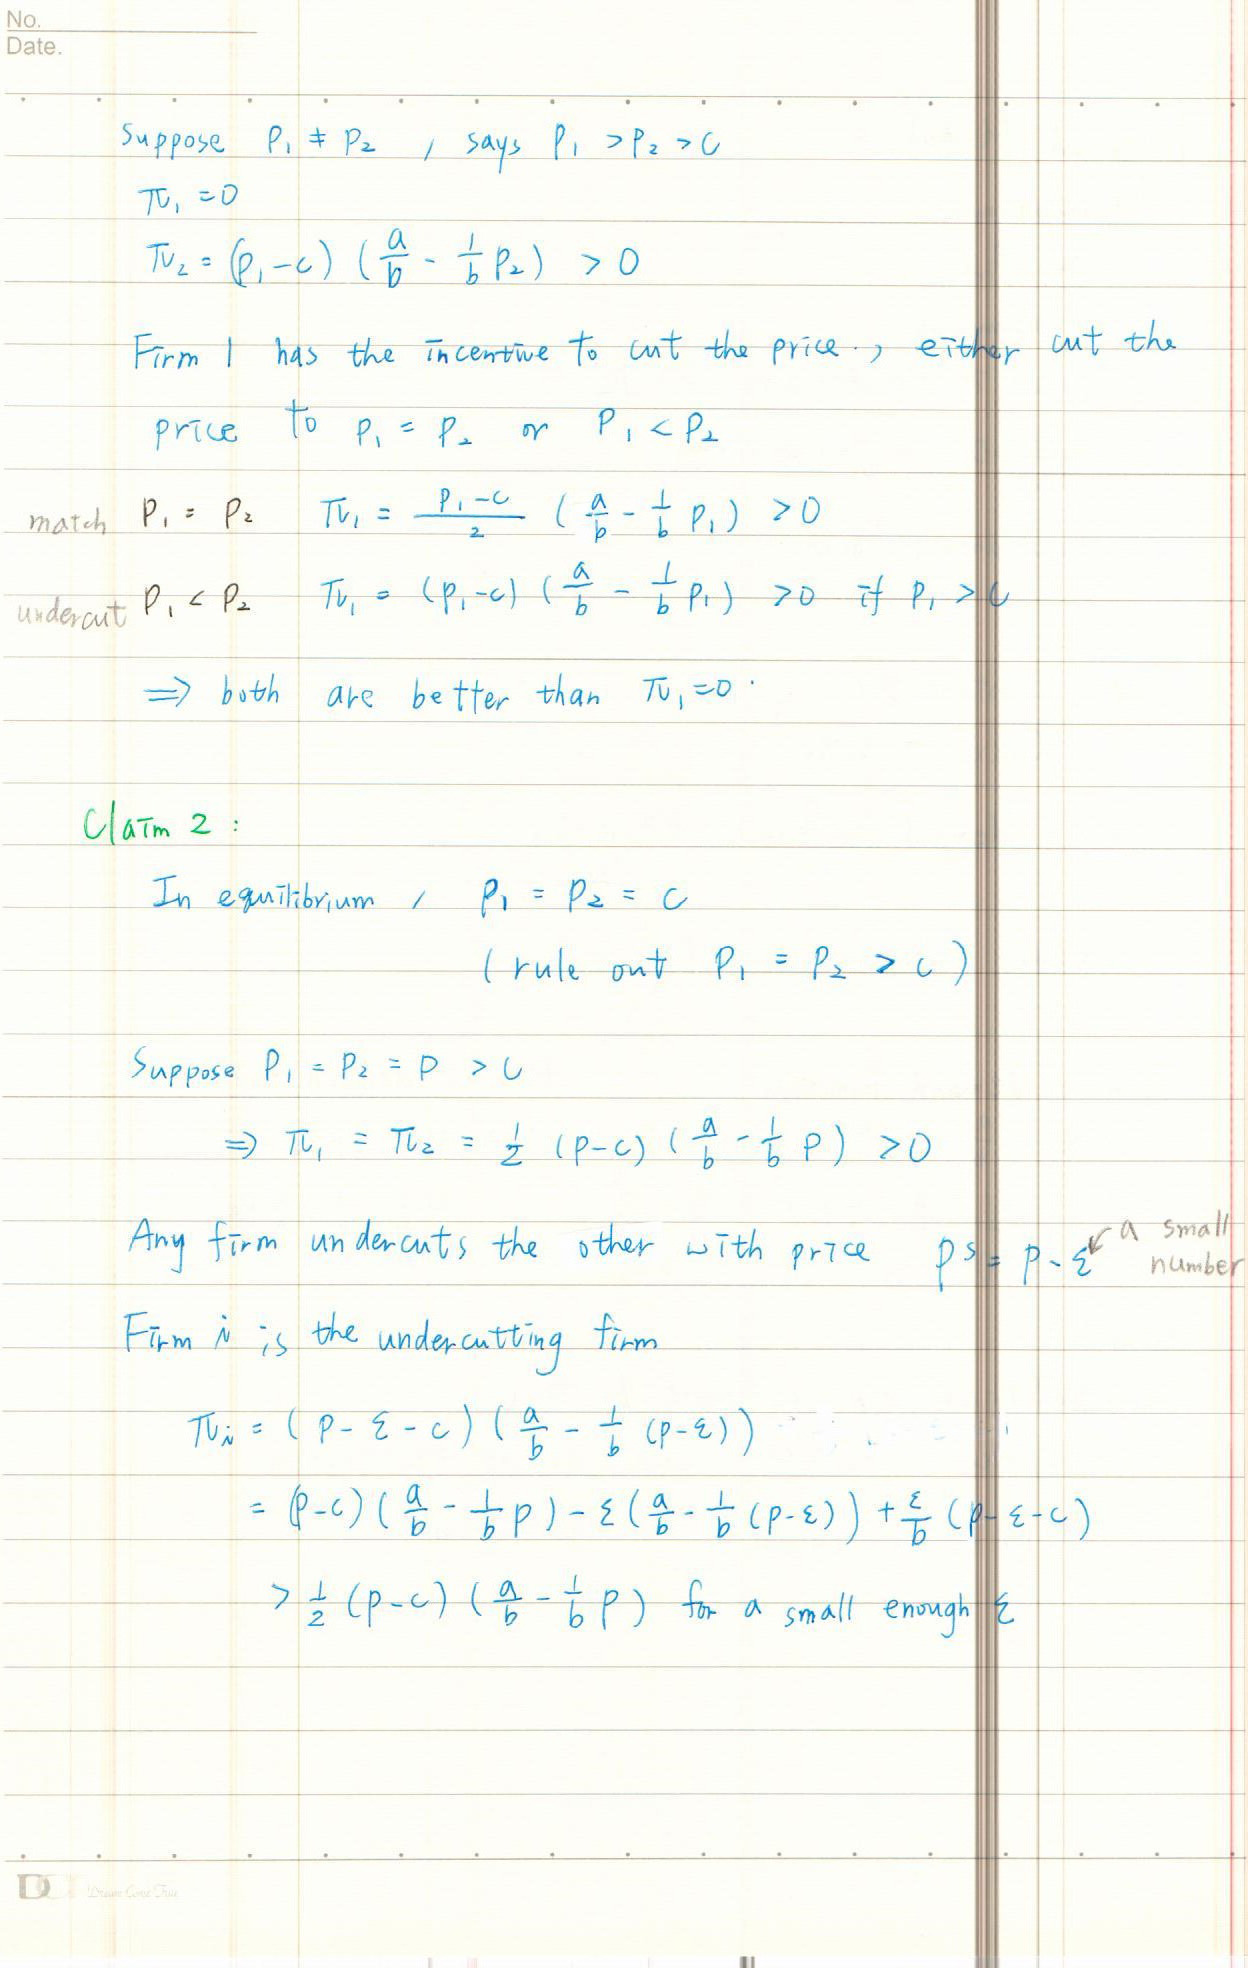 No.
Date.
Suppose P₁ ≠ P₂ , says P₁ > P₂ > C
π₁ = 0
π₂ = (P₁ - c) (a/b - 1/b P₂) > 0
Firm 1 has the incentive to cut the price., either cut the
price to P₁ = P₂ or P₁ < P₂
match P₁ = P₂ π₁ = (P₁ - c)/2 (a/b - 1/b P₁) > 0
undercut P₁ < P₂ π₁ = (P₁ - c) (a/b - 1/b P₁) > 0 if P₁ > C
⇒ both are better than π₁ = 0.
Claim 2 :
In equilibrium , P₁ = P₂ = C
( rule out P₁ = P₂ > C )
Suppose P₁ = P₂ = P > C
⇒ π₁ = π₂ = 1/2 (P - C) (a/b - 1/b P) > 0
Any firm undercuts the other with price Pˢ = P - ε a small number
Firm i is the undercutting firm
πᵢ = (P - ε - c) (a/b - 1/b (P - ε))
= (P - c) (a/b - 1/b P) - ε (a/b - 1/b (P - ε)) + ε/b (P - ε - c)
> 1/2 (P - c) (a/b - 1/b P) for a small enough ε
D
Dream Come True